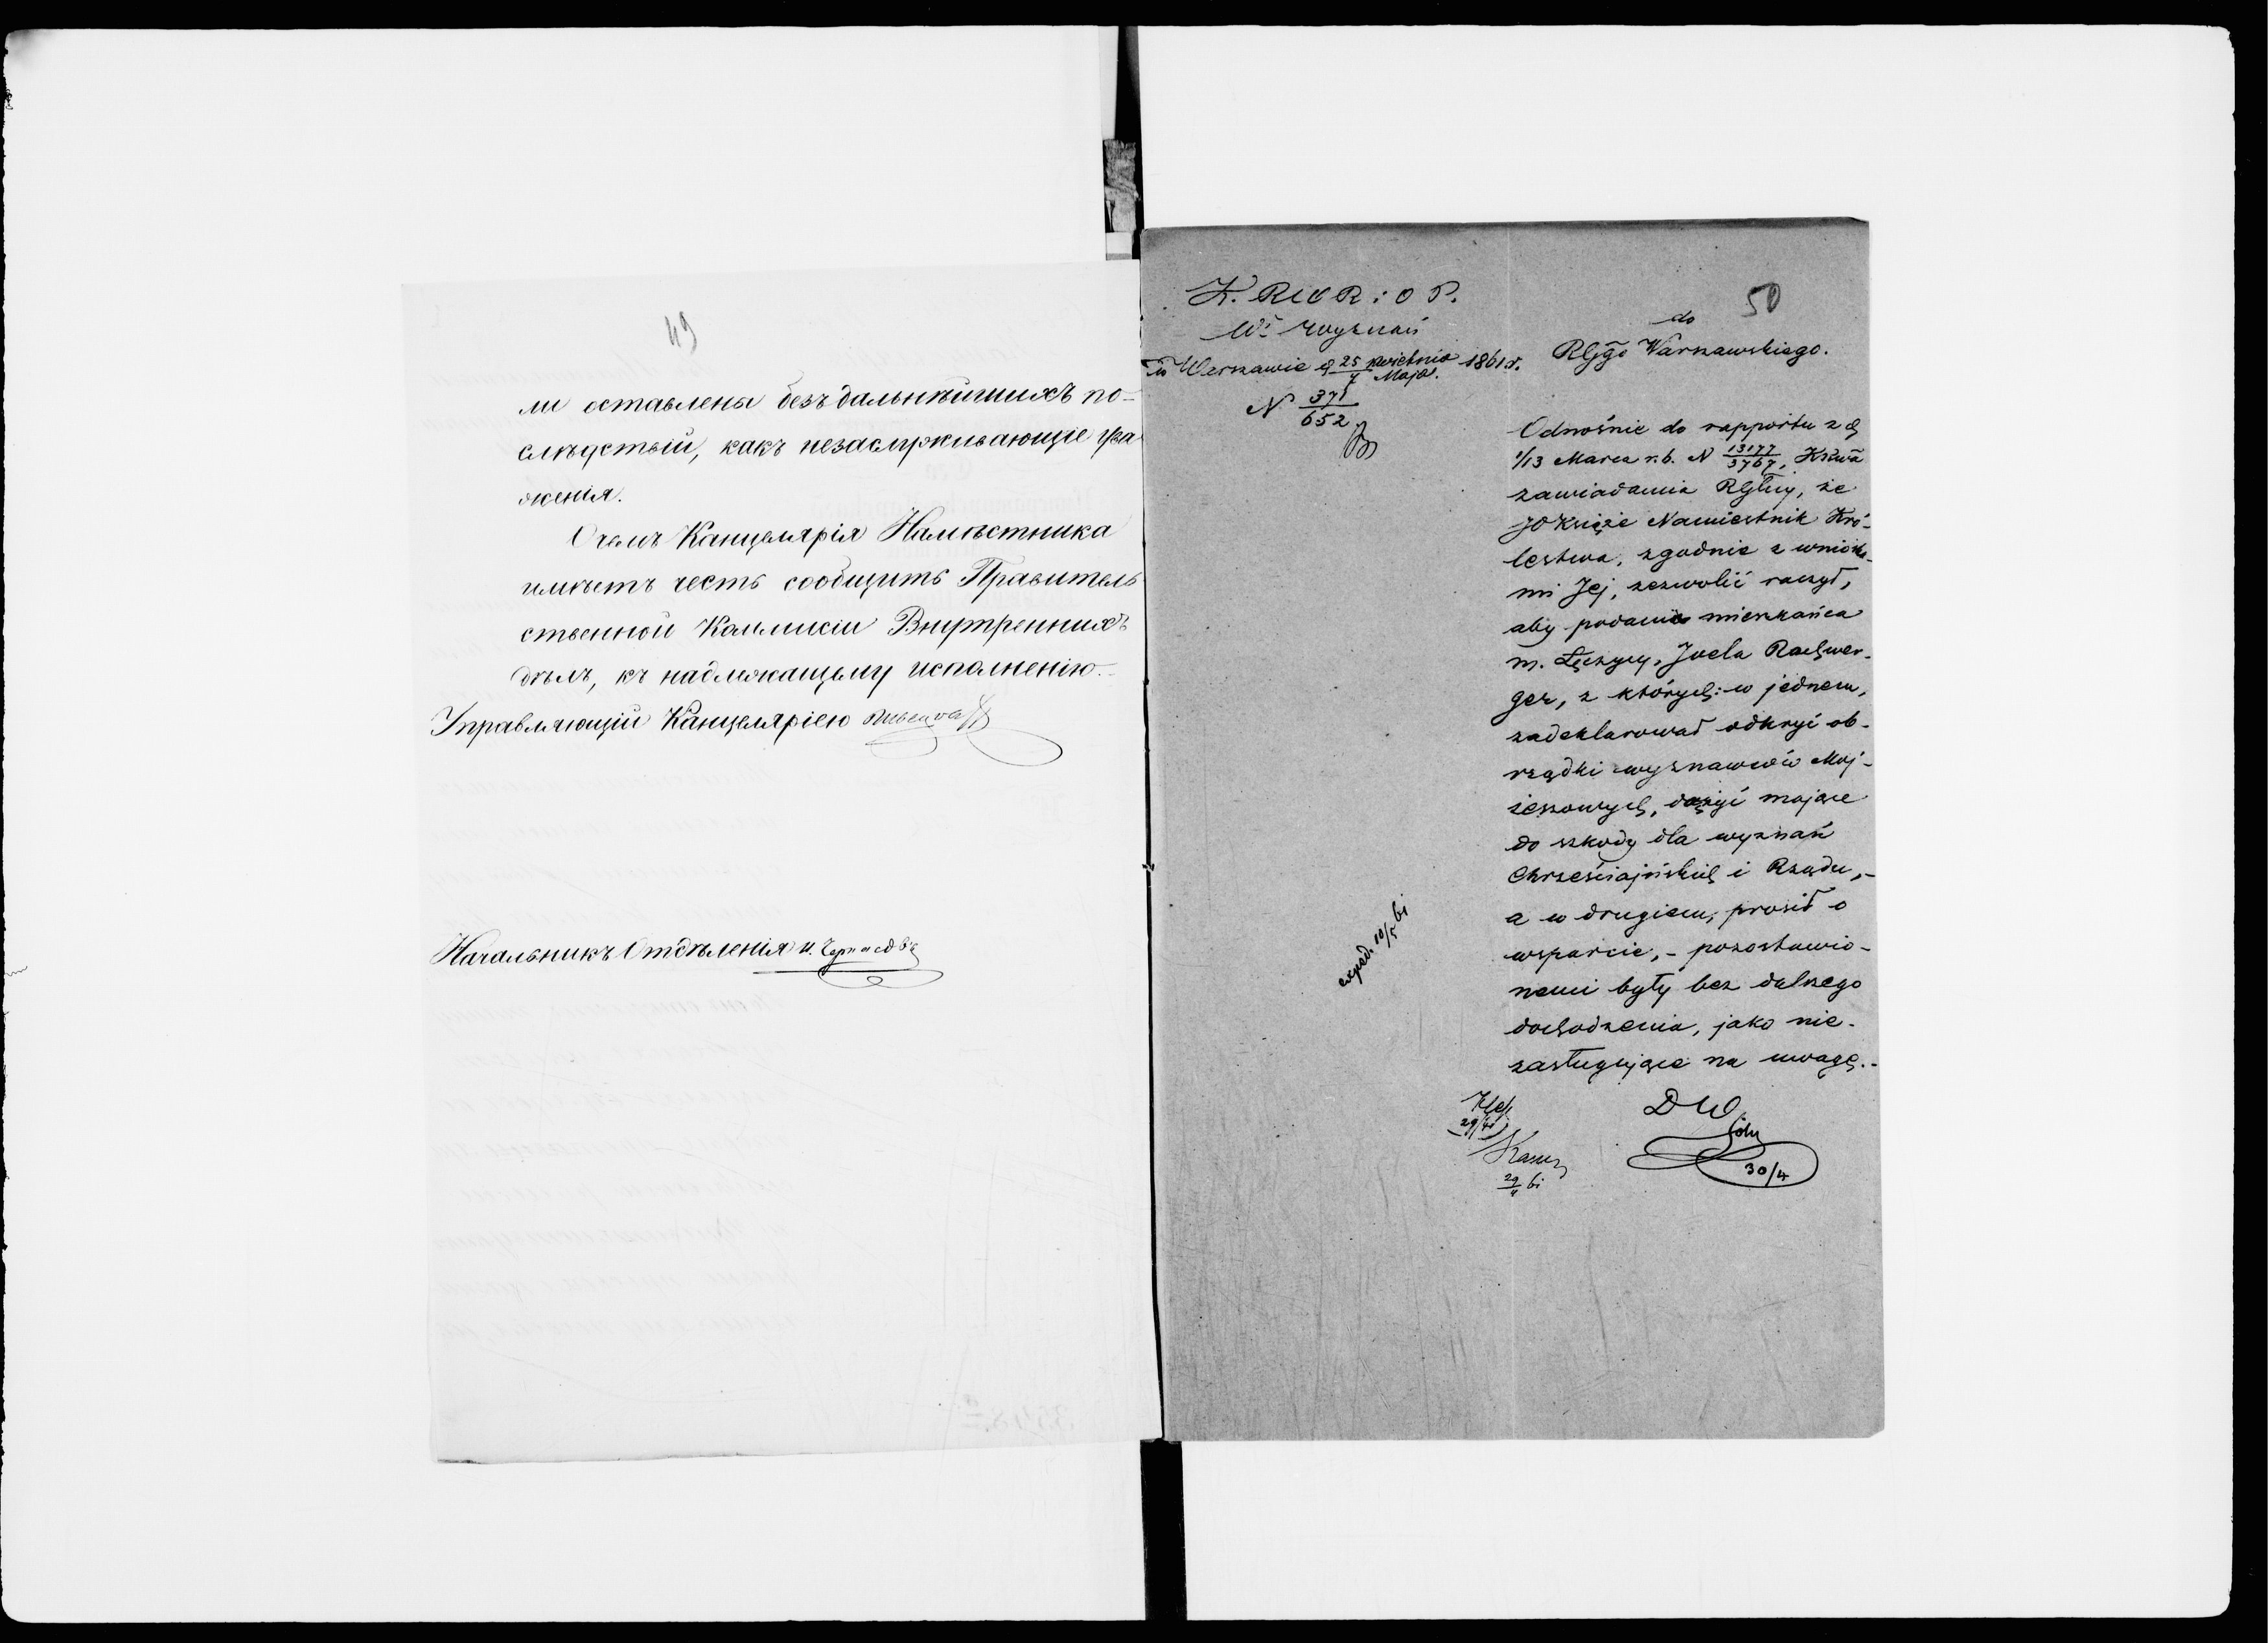 49
ли оставлены безъ дальнѣйшихъ по-
слѣдствій, какъ незаслуживающіе ува
женія.
О чемъ Канцелярія Намѣстника
имѣетъ честь сообщить Правитель
ственной Коммисіи Внутреннихъ
дѣлъ, къ надлежащему исполненію.
Управляющій Канцеляріею
Начальникъ Отдѣленія
50
K. R. S. W.
Wł Wyznań
w Warszawie d 25 kwietnia / 7 Maja 1861 r.
N 371/652
do
RGgo Warszawskiego.
Odnośnie do rapportu z d
1/13 Marca r.b. N 13177/3767, Kśwa
zawiadamia RGlny, że
JO Książe Namiestnik Kró-
lestwa, zgodnie z wnioska-
mi Jej, zezwolić raczył,
aby podania mieszkańca
m. Łęczycy, Joela Rachwer-
ger, z których: w jednem,
zadeklarował odkryć ob-
rządki wyznawców Moj-
żeszowych, dążyć mające
do szkody dla wyznań
Chrześciajńskich i Rządu,-
a w drugiem, prosił o
wsparcie,- pozostawio-
nemi były bez dalszego
dochodzenia, jako nie-
zasługujące na uwagę.-
exped. 10/5 61
29/4
DW
30/4
29/4 61